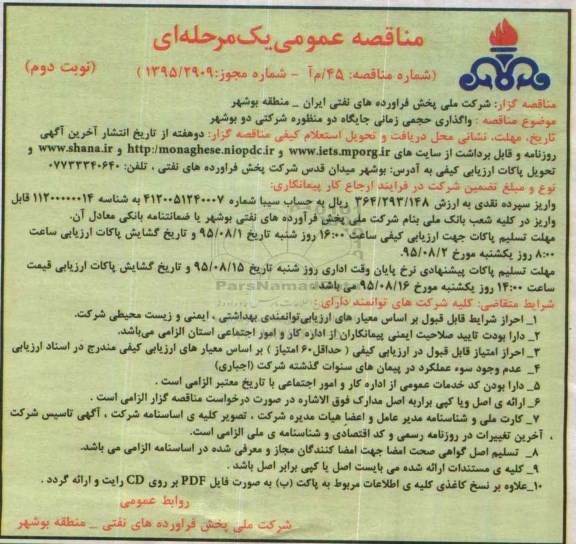 مناقصه عمومی یک مرحله‌ای
(شماره مناقصه: ۴۵/م‌آ – شماره مجوز: ۱۳۹۵/۲۹۰۹)
(نوبت دوم)
مناقصه گزار: شرکت ملی پخش فراورده های نفتی ایران _ منطقه بوشهر
موضوع مناقصه : واگذاری حجمی زمانی جایگاه دو منظوره شرکتی دو بوشهر
تاریخ، مهلت، نشانی محل دریافت و تحویل استعلام کیفی مناقصه گزار: دوهفته از تاریخ انتشار آخرین آگهی
روزنامه و قابل برداشت از سایت های www.iets.mporg.ir و http:/monaghese.niopdc.ir و www.shana.ir و
تحویل پاکات ارزیابی کیفی به آدرس: بوشهر میدان قدس شرکت پخش فراورده های نفتی ، تلفن: ۰۷۷۳۳۳۴۰۶۴۰
نوع و مبلغ تضمین شرکت در فرایند ارجاع کار پیمانکاری:
واریز سپرده نقدی به ارزش ۳۶۴/۲۹۳/۱۴۸ ریال به حساب سیبا شماره ۴۱۲۰۰۵۱۲۴۰۰۰۷ به شناسه ۱۱۲۰۰۰۰۰۰۱۴ قابل
واریز در کلیه شعب بانک ملی بنام شرکت ملی پخش فرآورده های نفتی بوشهر یا ضمانتنامه بانکی معادل آن.
مهلت تسلیم پاکات جهت ارزیابی کیفی ساعت ۱۶:۰۰ روز شنبه تاریخ ۹۵/۰۸/۱ و تاریخ گشایش پاکات ارزیابی ساعت
۸:۰۰ روز یکشنبه مورخ ۹۵/۰۸/۲.
مهلت تسلیم پاکات پیشنهادی نرخ پایان وقت اداری روز شنبه تاریخ ۹۵/۰۸/۱۵ و تاریخ گشایش پاکات ارزیابی قیمت
ساعت ۱۴:۰۰ روز یکشنبه مورخ ۹۵/۰۸/۱۶ می باشد.
شرایط متقاضی: کلیه شرکت های توانمند دارای :
۱_ احراز شرایط قابل قبول بر اساس معیار های ارزیابی‌توانمندی بهداشتی ، ایمنی و زیست محیطی شرکت.
۲_ دارا بودت تایید صلاحیت ایمنی پیمانکاران از اداره کار و امور اجتماعی استان الزامی می‌باشد.
۳_ احراز امتیاز قابل قبول در ارزیابی کیفی ( حداقل ۶۰ امتیاز ) بر اساس معیار های ارزیابی کیفی مندرج در اسناد ارزیابی
۴_ عدم وجود سوء عملکرد در پیمان های سنوات گذشته شرکت (اجباری)
۵_ دارا بودن کد خدمات عمومی از اداره کار و امور اجتماعی با تاریخ معتبر الزامی است .
۶_ ارائه ی اصل ویا کپی برابربه اصل مدارک فوق الاشاره در صورت درخواست مناقصه گزار الزامی است .
۷_ کارت ملی و شناسنامه مدیر عامل و اعضا هیات مدیره شرکت ، تصویر کلیه ی اساسنامه شرکت ، آگهی تاسیس شرکت
، آخرین تغییرات در روزنامه رسمی و کد اقتصادی و شناسنامه ی ملی الزامی است.
۸_ تسلیم اصل گواهی صحت امضا جهت امضا کنندگان مجاز و معرفی شده در اساسنامه الزامی می باشد.
۹_ کلیه ی مستندات ارائه شده می بایست اصل یا کپی برابر اصل باشد .
۱۰_علاوه بر نسخ کاغذی کلیه ی اطلاعات مربوط به پاکت (ب) به صورت فایل PDF بر روی CD رایت و ارائه گردد .
روابط عمومی
شرکت ملی پخش فراورده های نفتی _ منطقه بوشهر